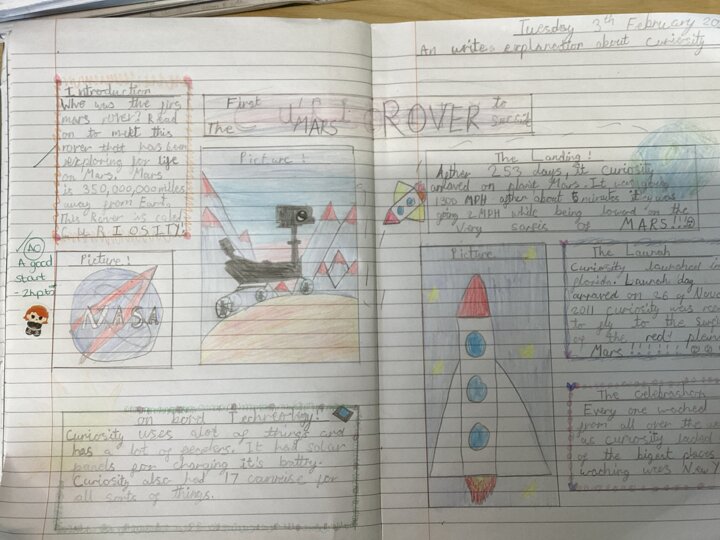 Tuesday 3rd February 20
An write explanation about Curiosity
Introduction
Who was the firs
mars rover? Read
on to meet this
rover that has been
exploring for life
on Mars. Mars
is 350,000,000 miles
away from Earth.
This Rover is called
CURIOSITY.
First
The MARS ROVER to
Picture!
AO
A good
start
- 2hpts
Picture!
NASA
on bord Technology!
Curiosity uses alot of things and
has a lot of
panels for charging it's battry.
Curiosity also had 17 for
all sorts of things.
The Landing!
Afther 253 days, it curiosity
arraved on planit Mars. It was going
1300 MPH afther about 6 minutes it was
going 2 MPH while being on the
very of MARS!!
Picture
The Launch
Curiosity launched in
florida. Launch day
arraved on 26 of Nove
2011 curiosity was rea
to fly to the
of the red! plan
Mars!!!!!!!!
The celebration
Every one wached
from all over the
as curiosity
of the bigest places
waching was New